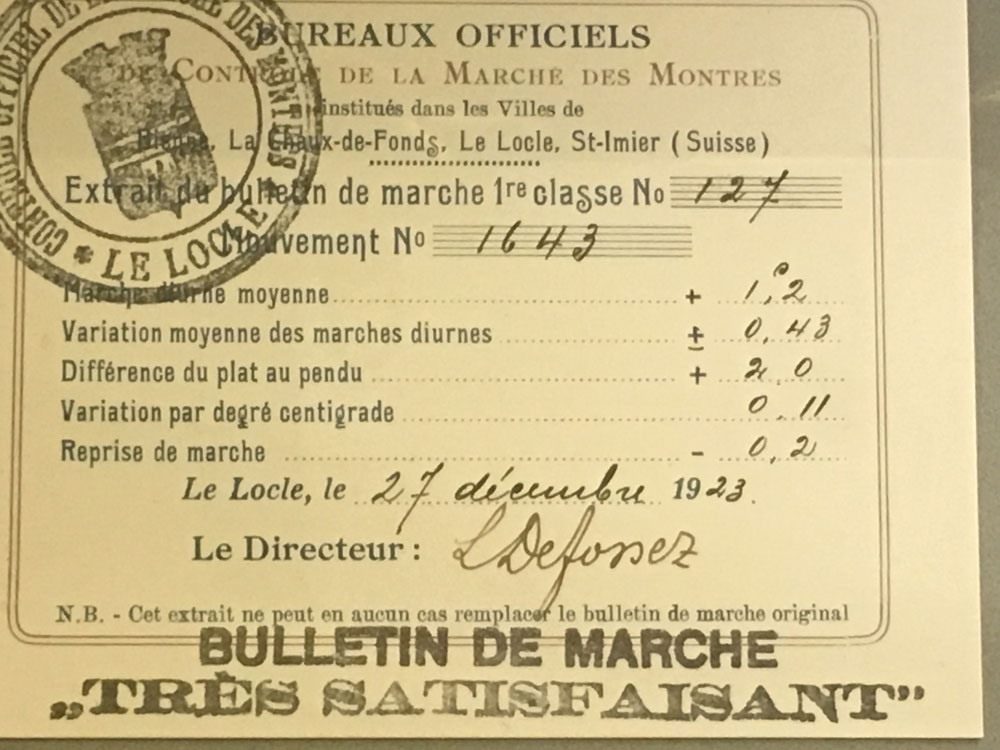 BUREAUX OFFICIELS
DE CONTROLE DE LA MARCHE DES MONTRES
institués dans les Villes de
Bienne, La Chaux-de-Fonds, Le Locle, St-Imier (Suisse)
Extrait du bulletin de marche 1re classe No 127
Mouvement No 1643
Marche diurne moyenne + 1,2
Variation moyenne des marches diurnes ± 0,43
Différence du plat au pendu + 2,0
Variation par degré centigrade 0,11
Reprise de marche - 0,2
Le Locle, le 27 décembre 1923.
Le Directeur: L Defossez
N.B. - Cet extrait ne peut en aucun cas remplacer le bulletin de marche original
BULLETIN DE MARCHE
„TRÈS SATISFAISANT”
CONTROLE OFFICIEL DE LA MARCHE DES MONTRES
* LE LOCLE *